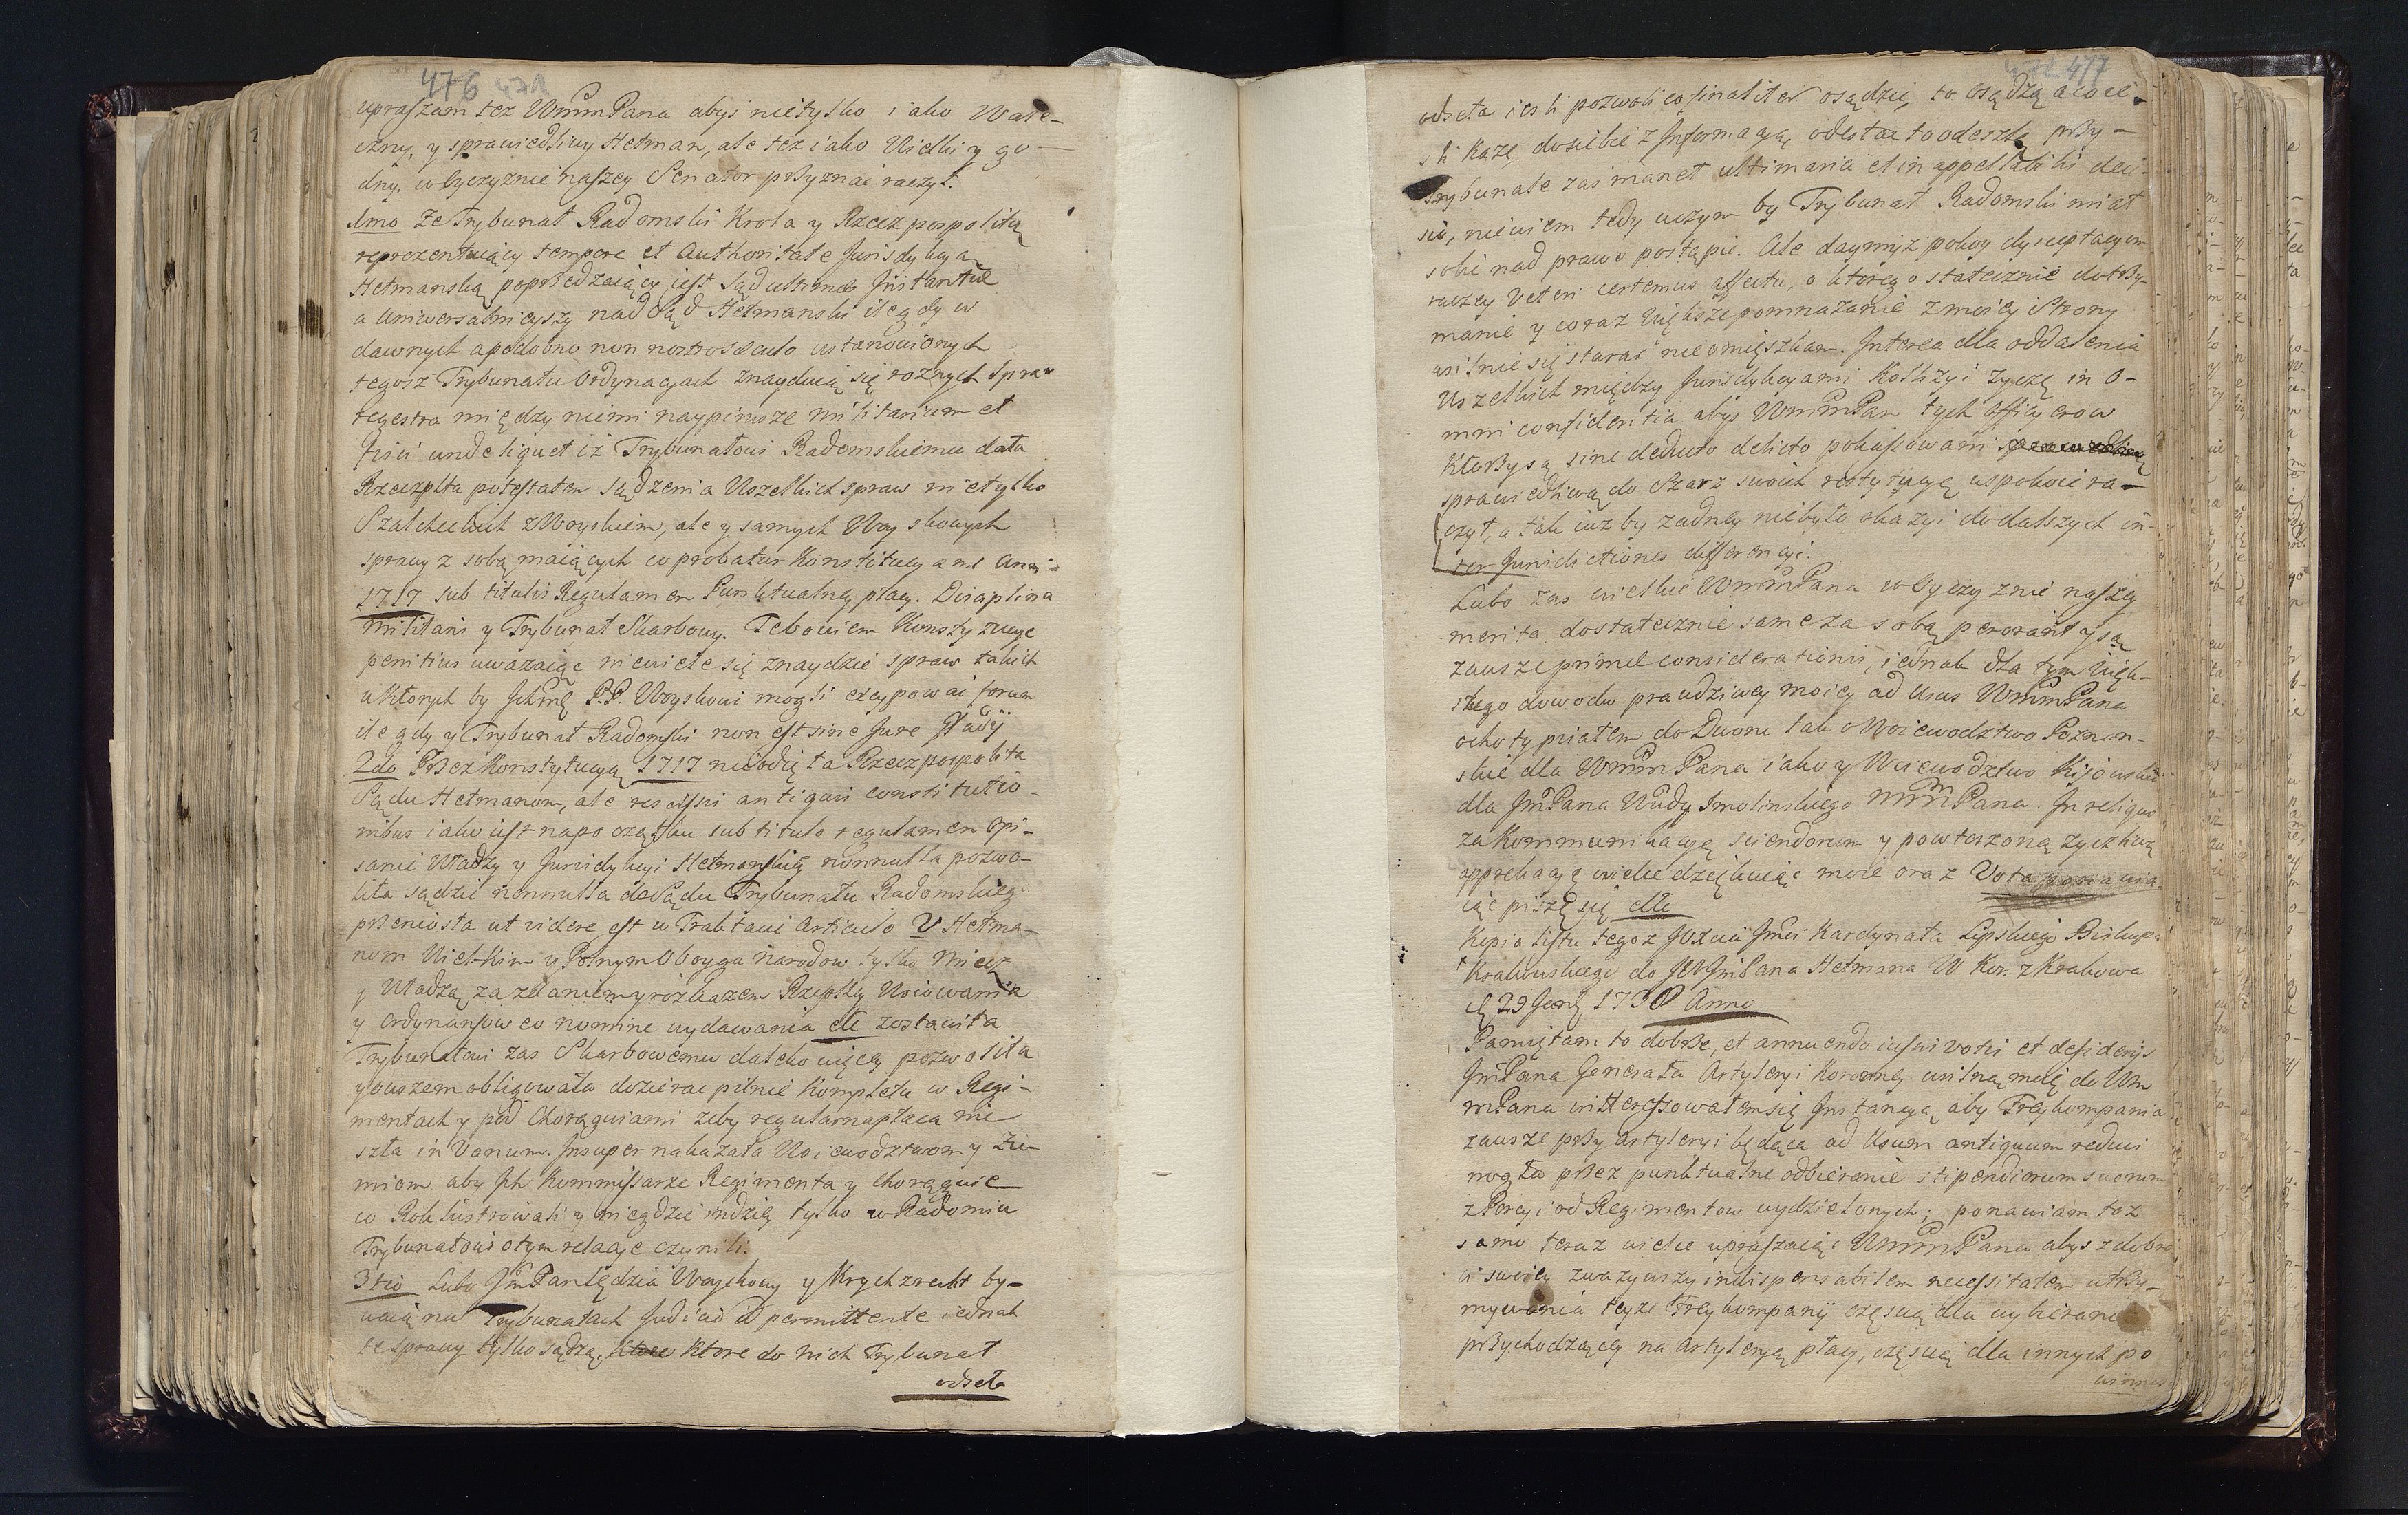 476 471
upraszam tez WmmPana abys nietylko iako Wale-
czny, y sprawiedliwy Hetman, ale tez iako Wielki y go-
dny, w Oyczyznie naszey Senator przyznac raczył.
1mo Ze Trybunał Radomski Krola y Rzeczpospolitą
reprezentuiący tempore et Authoritate Jurisdykcyą
Hetmanską poprzedzaiący iest Sąd ultimae Instantiae
a uniwersalnieyszy nad Sąd Hetmanski ile gdy w
dawnych a podobno non nostro saeculo ustanowionych
tegosz Trybunału Ordynacyach znayduią się roznych spraw
regestra między niemi naypierwsze militarium et
fisci unde liquet iż Trybunałowi Radomskiemu dała
Rzeczplta potestatem sądzenia Wszelkich spraw nietylko
Szlacheckich z Woyskiem, ale y samych Woyskowych
sprawy z sobą maiących co probatur Konstitucyami Anni
1717 sub titulis Regulamen Punktualney płacy. Disciplina
militaris y Trybunał Skarbowy. Te bowiem Konstytucye
penitius uwazaiąc niewiele się znaydzie spraw takich
w ktorych by Ichmc P.P. Woyskowi mogli excypować forum
ile gdy y Trybunał Radomski non est sine Jure Gladij
2do Przez Konstytucyą 1717 nieodięta Rzeczpospolita
Sądu Hetmanom, ale rescissis antiquis constitutio-
nibus iako iest na początku sub titulo regulamen opi-
sanie Władzy y Jurisdykcyi Hetmanskiey nonnulla pozwo-
liła sądzić nonnulla do Sądu Trybunału Radomskiego
przeniosła ut videre est w Traktacie Articulo V Hetma-
nom Wielkim y Polnym Oboyga narodow tylko Miecz
y Władzą za zdaniem y rozkazem Rzeplty Woiowania
y Ordynansow eo nomine wydawania etc zostawiła
Trybunałowi zas Skarbowemu daleko więcey pozwoliła
y owszem obligowała dozierac pilnie Kompletu w Regi-
mentach y pod Chorągwiami zeby regularna płaca nie
szła in Vanum. Insuper nakazała Woiewodztwom y Zie-
miom aby Ich Kommissarze Regimenta y Chorągwie
co Rok lustrowali y niegdzie indziey tylko w Radomiu
Trybunałowi o tym relacye czynili.
3tio Lubo JmPan Sędzia Woyskowy y Krychzrecht by-
waią na Trybunałach Judicio id permittente iednak
te sprawy tylko sądzą, ktore do nich Trybunał.
odseła
472 477
odseła iesli pozwoli co finaliter osądzić, to osądzą a ieze-
sli każe, do siebie z Informacyą odesłac to odeszlą, przy
Trybunale zas manet ultimaria et inappellabilis deci-
sio, niewiem tedy w czym by Trybunał Radomski miał
sobie nad prawo postąpic. Ale daymyż pokoy dysceptacyom
raczey Veteri certemus affectu, o ktorego statecznie dotrzy-
manie y coraz większe pomnazanie z moiey Strony
usilnie się starać nieomięszkam. Interea dla oddalenia
Wszelkich między Jurisdykcyami Kollizyi zyczę in o-
mni confidentia abys WmmPan tych Officyerow
Ktorzy są sine deducto delicto pokassowani
sprawiedliwą do Szarz swoich restytucyą uspokoic ra-
czył, a tak iuz by zadney niebyło okazyi do dalszych in-
ter Jurisdictiones differencyi.
Lubo zas wielkie WmmPana w Oyczyznie naszey
merita dostatecznie same za sobą perorant y są
zawsze primae considerationis, iednak dla tym więk-
szego dowodu prawdziwey moiey ad usus WmmPana
ochoty pisałem do Dworu tak o Woiewodztwo Poznan-
skie dla WmmPana iako y Woiewodztwo Kijowskie
dla JmPana Wdy Smolinskiego mmPana. In reliquo
za Kommunikacyą sciendorum y powtorzoną zyczliwą
apprekacyą wielce dziękuiąc moie oraz Vota ponawia
iąc piszę się etc
Kopia listu tegoz JOXcia Jmci Kardynała Lipskiego Biskupa
Krakowskiego do JWJmPana Hetmana W. Kor. z Krakowa
d 29 Janr 1738 Anno
Pamiętam to dobrze, et annuendo iustis votis et desiderijs
JmPana Generała Artyleryi Koronney usilną moię do Wm
mPana interessowałem się Instancyą aby Freykompania
zawsze przy Artyleryi będąca ad Usum antiquum reduci
mogła przez punktualne odbieranie stipendiorum suorum
z Porcyi od Regimentow wydzielonych; ponawiam toz
samo teraz wielce upraszaiąc WmmPana abys z dobro
ci swoiey zwazywszy indispensabilem necessitatem utrzy-
mywania teyze Freykompanij częscią dla wybierania
przychodzącey na Artyleryą płacy, częscią dla innych po
winnos